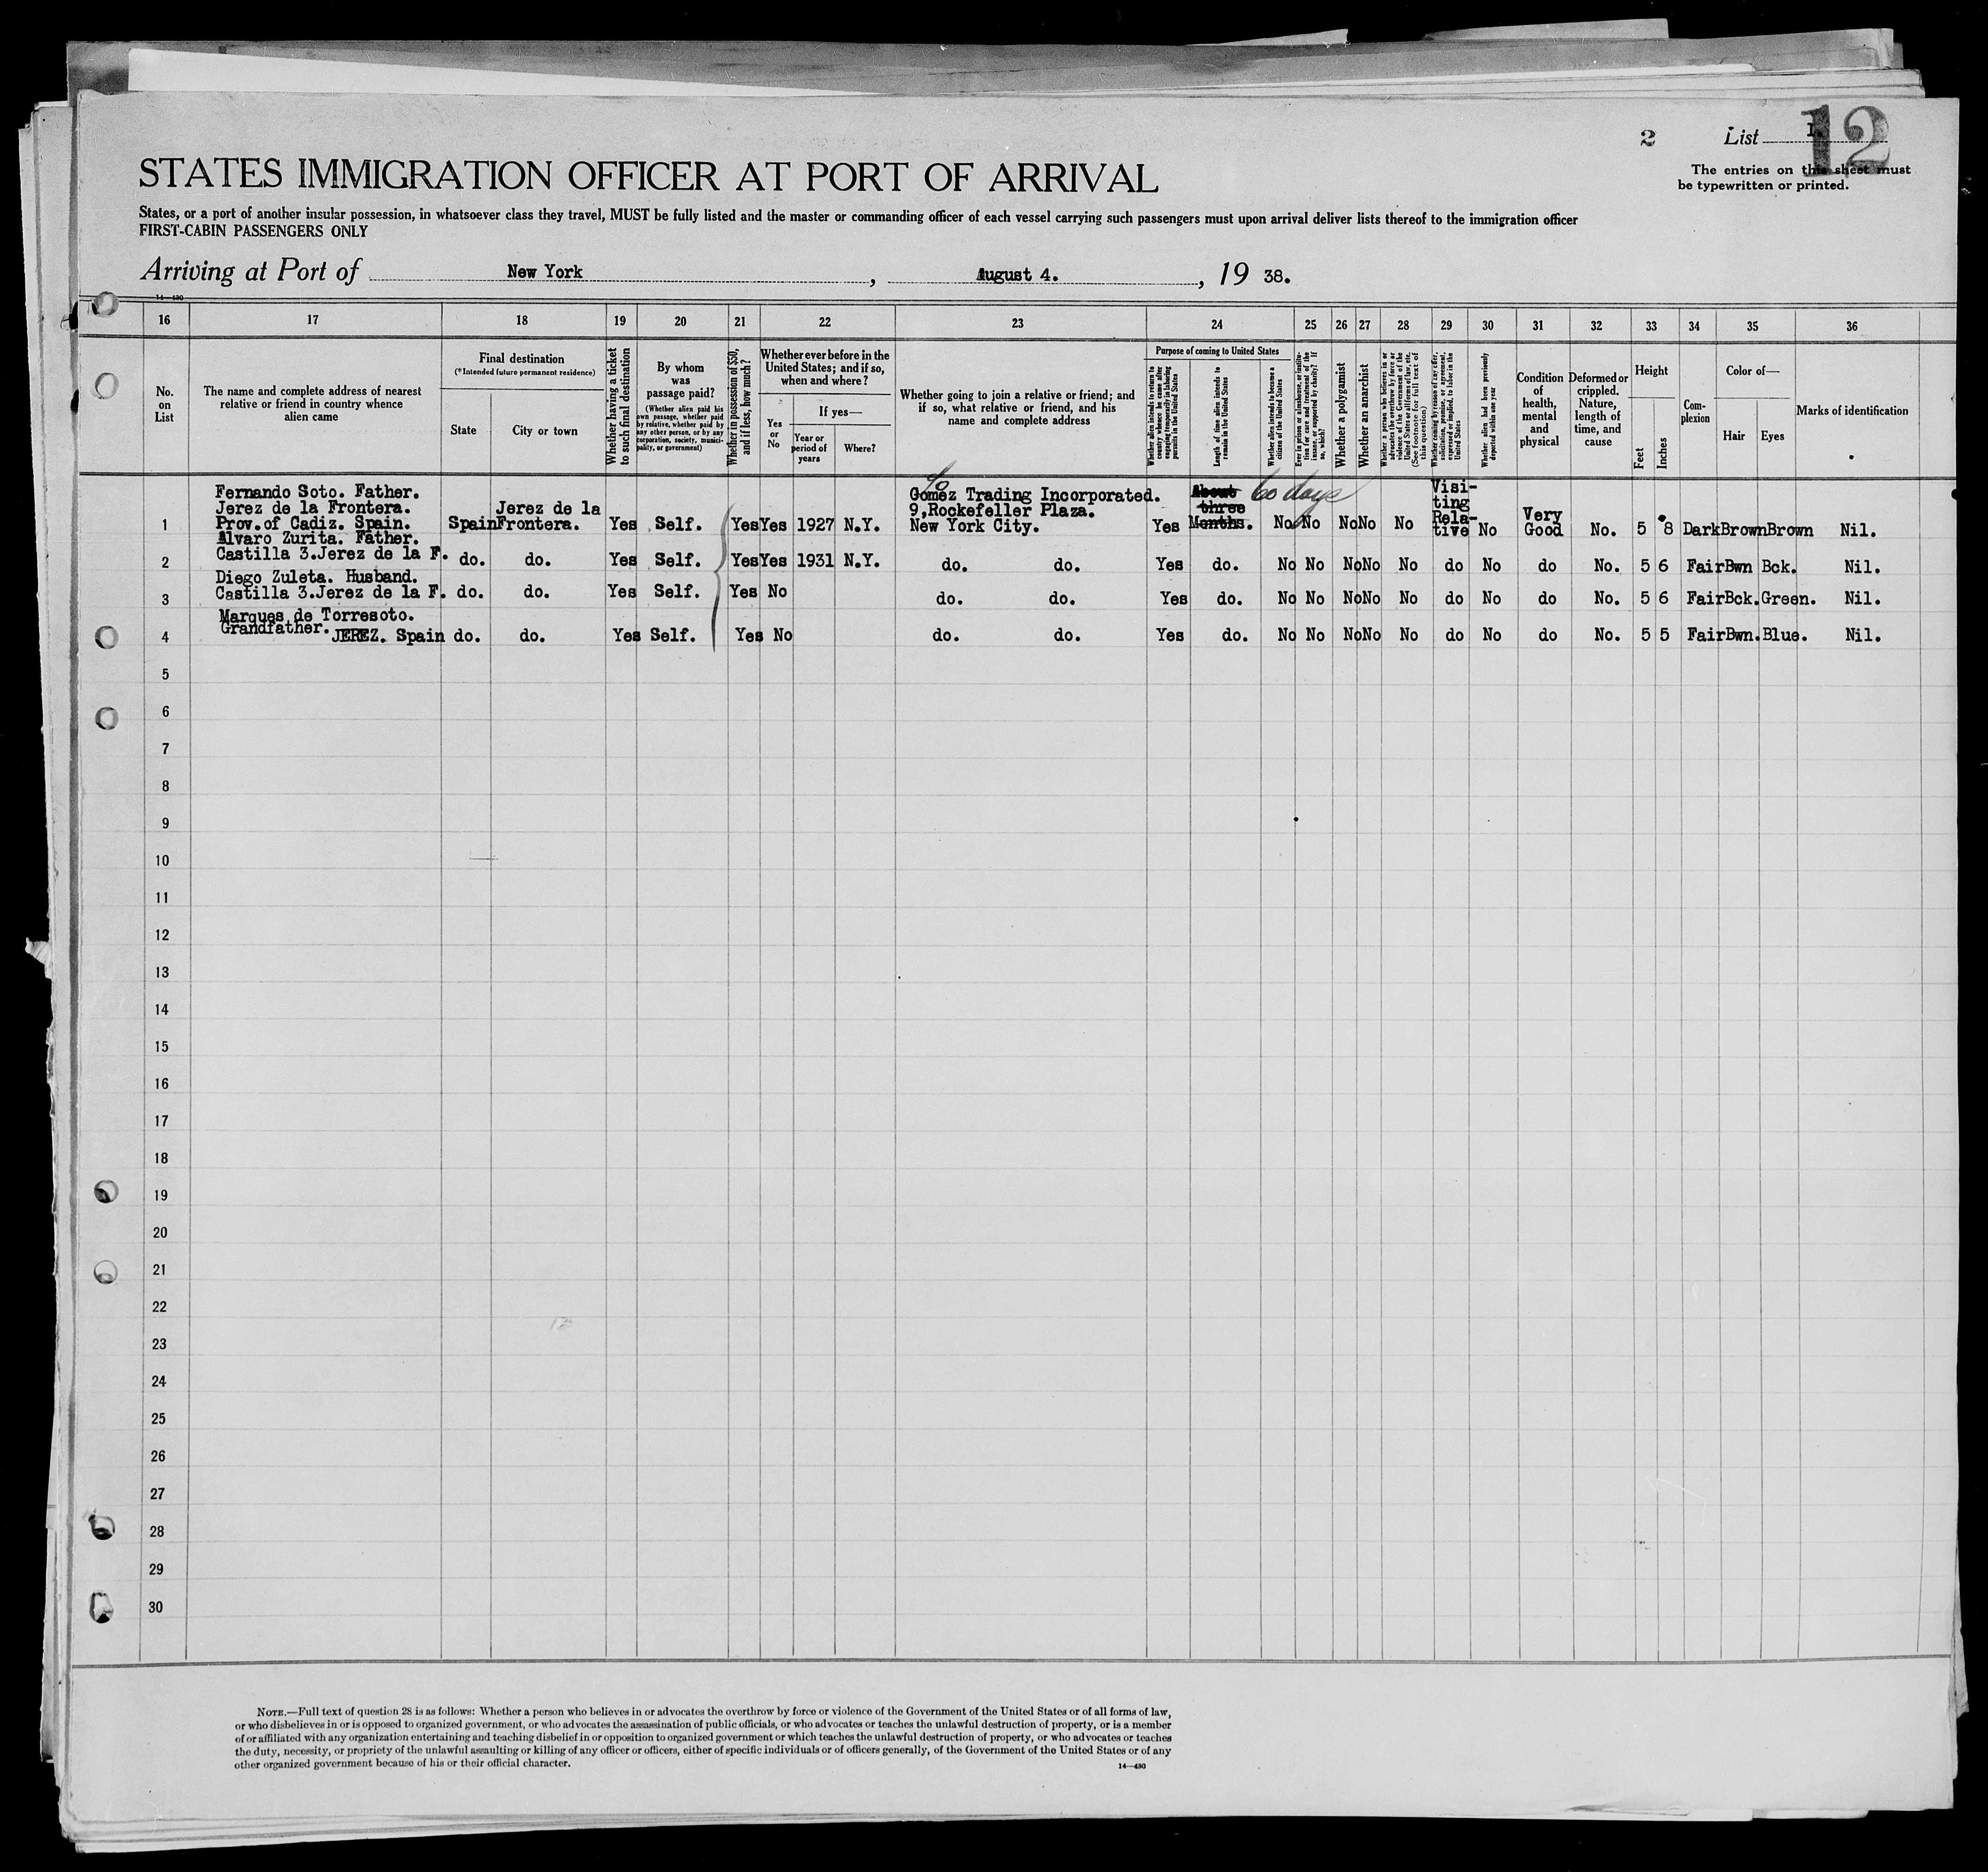 2
List 1.
12
The entries on this sheet must
be typewritten or printed.
STATES IMMIGRATION OFFICER AT PORT OF ARRIVAL
States, or a port of another insular possession, in whatsoever class they travel, MUST be fully listed and the master or commanding officer of each vessel carrying such passengers must upon arrival deliver lists thereof to the immigration officer
FIRST-CABIN PASSENGERS ONLY
Arriving at Port of New York, August 4., 19 38.
14—430
16 17 18 19 20 21 22 23 24 25 26 27 28 29 30 31 32 33 34 35 36
No.
on
List
The name and complete address of nearest
relative or friend in country whence
alien came
Final destination
(*Intended future permanent residence)
State
City or town
Whether having a ticket
to such final destination
By whom
was
passage paid?
(Whether alien paid his
own passage, whether paid
by relative, whether paid by
any other person, or by any
corporation, society, munici-
pality, or government)
Whether in possession of $50,
and if less, how much?
Whether ever before in the
United States; and if so,
when and where?
Yes
or
No
If yes—
Year or
period of
years
Where?
Whether going to join a relative or friend; and
if so, what relative or friend, and his
name and complete address
Purpose of coming to United States
Whether alien intends to return to
country whence he came after
engaging temporarily in laboring
pursuits in the United States
Length of time alien intends to
remain in the United States
Whether alien intends to become a
citizen of the United States
Ever in prison or almshouse, or institu-
tion for care and treatment of the
insane, or supported by charity? If
so, which?
Whether a polygamist
Whether an anarchist
Whether a person who believes in or
advocates the overthrow by force or
violence of the Government of the
United States or all forms of law, etc.
(See footnote for full text of
this question)
Whether coming by reason of any offer,
solicitation, promise, or agreement,
expressed or implied, to labor in the
United States
Whether alien had been previously
deported within one year
Condition
of
health,
mental
and
physical
Deformed or
crippled.
Nature,
length of
time, and
cause
Height
Feet
Inches
Com-
plexion
Color of—
Hair
Eyes
Marks of identification
Fernando Soto. Father.
Jerez de la Frontera.
1 Prov.of Cadiz. Spain. Spain Jerez de la Frontera. Yes Self. Yes Yes 1927 N.Y.
Gomez Trading Incorporated.
9,Rockefeller Plaza.
New York City.
Yes About three Months. 60 days No No No No No Visi-
ting
Rela-
tive No Very
Good No. 5 8 Dark Brown Brown Nil.
Alvaro Zurita. Father.
2 Castilla 3.Jerez de la F. do. do. Yes Self. Yes Yes 1931 N.Y. do. do. Yes do. No No No No No do No do No. 5 6 Fair Bwn Bck. Nil.
Diego Zuleta. Husband.
3 Castilla 3.Jerez de la F. do. do. Yes Self. Yes No do. do. Yes do. No No No No No do No do No. 5 6 Fair Bck. Green. Nil.
Marques de Torresoto.
4 Grandfather. JEREZ. Spain do. do. Yes Self. Yes No do. do. Yes do. No No No No No do No do No. 5 5 Fair Bwn. Blue. Nil.
5
6
7
8
9
10
11
12
13
14
15
16
17
18
19
20
21
22
23
24
25
26
27
28
29
30
NOTE.—Full text of question 28 is as follows: Whether a person who believes in or advocates the overthrow by force or violence of the Government of the United States or of all forms of law,
or who disbelieves in or is opposed to organized government, or who advocates the assassination of public officials, or who advocates or teaches the unlawful destruction of property, or is a member
of or affiliated with any organization entertaining and teaching disbelief in or opposition to organized government or which teaches the unlawful destruction of property, or who advocates or teaches
the duty, necessity, or propriety of the unlawful assaulting or killing of any officer or officers, either of specific individuals or of officers generally, of the Government of the United States or of any
other organized government because of his or their official character.
14—430